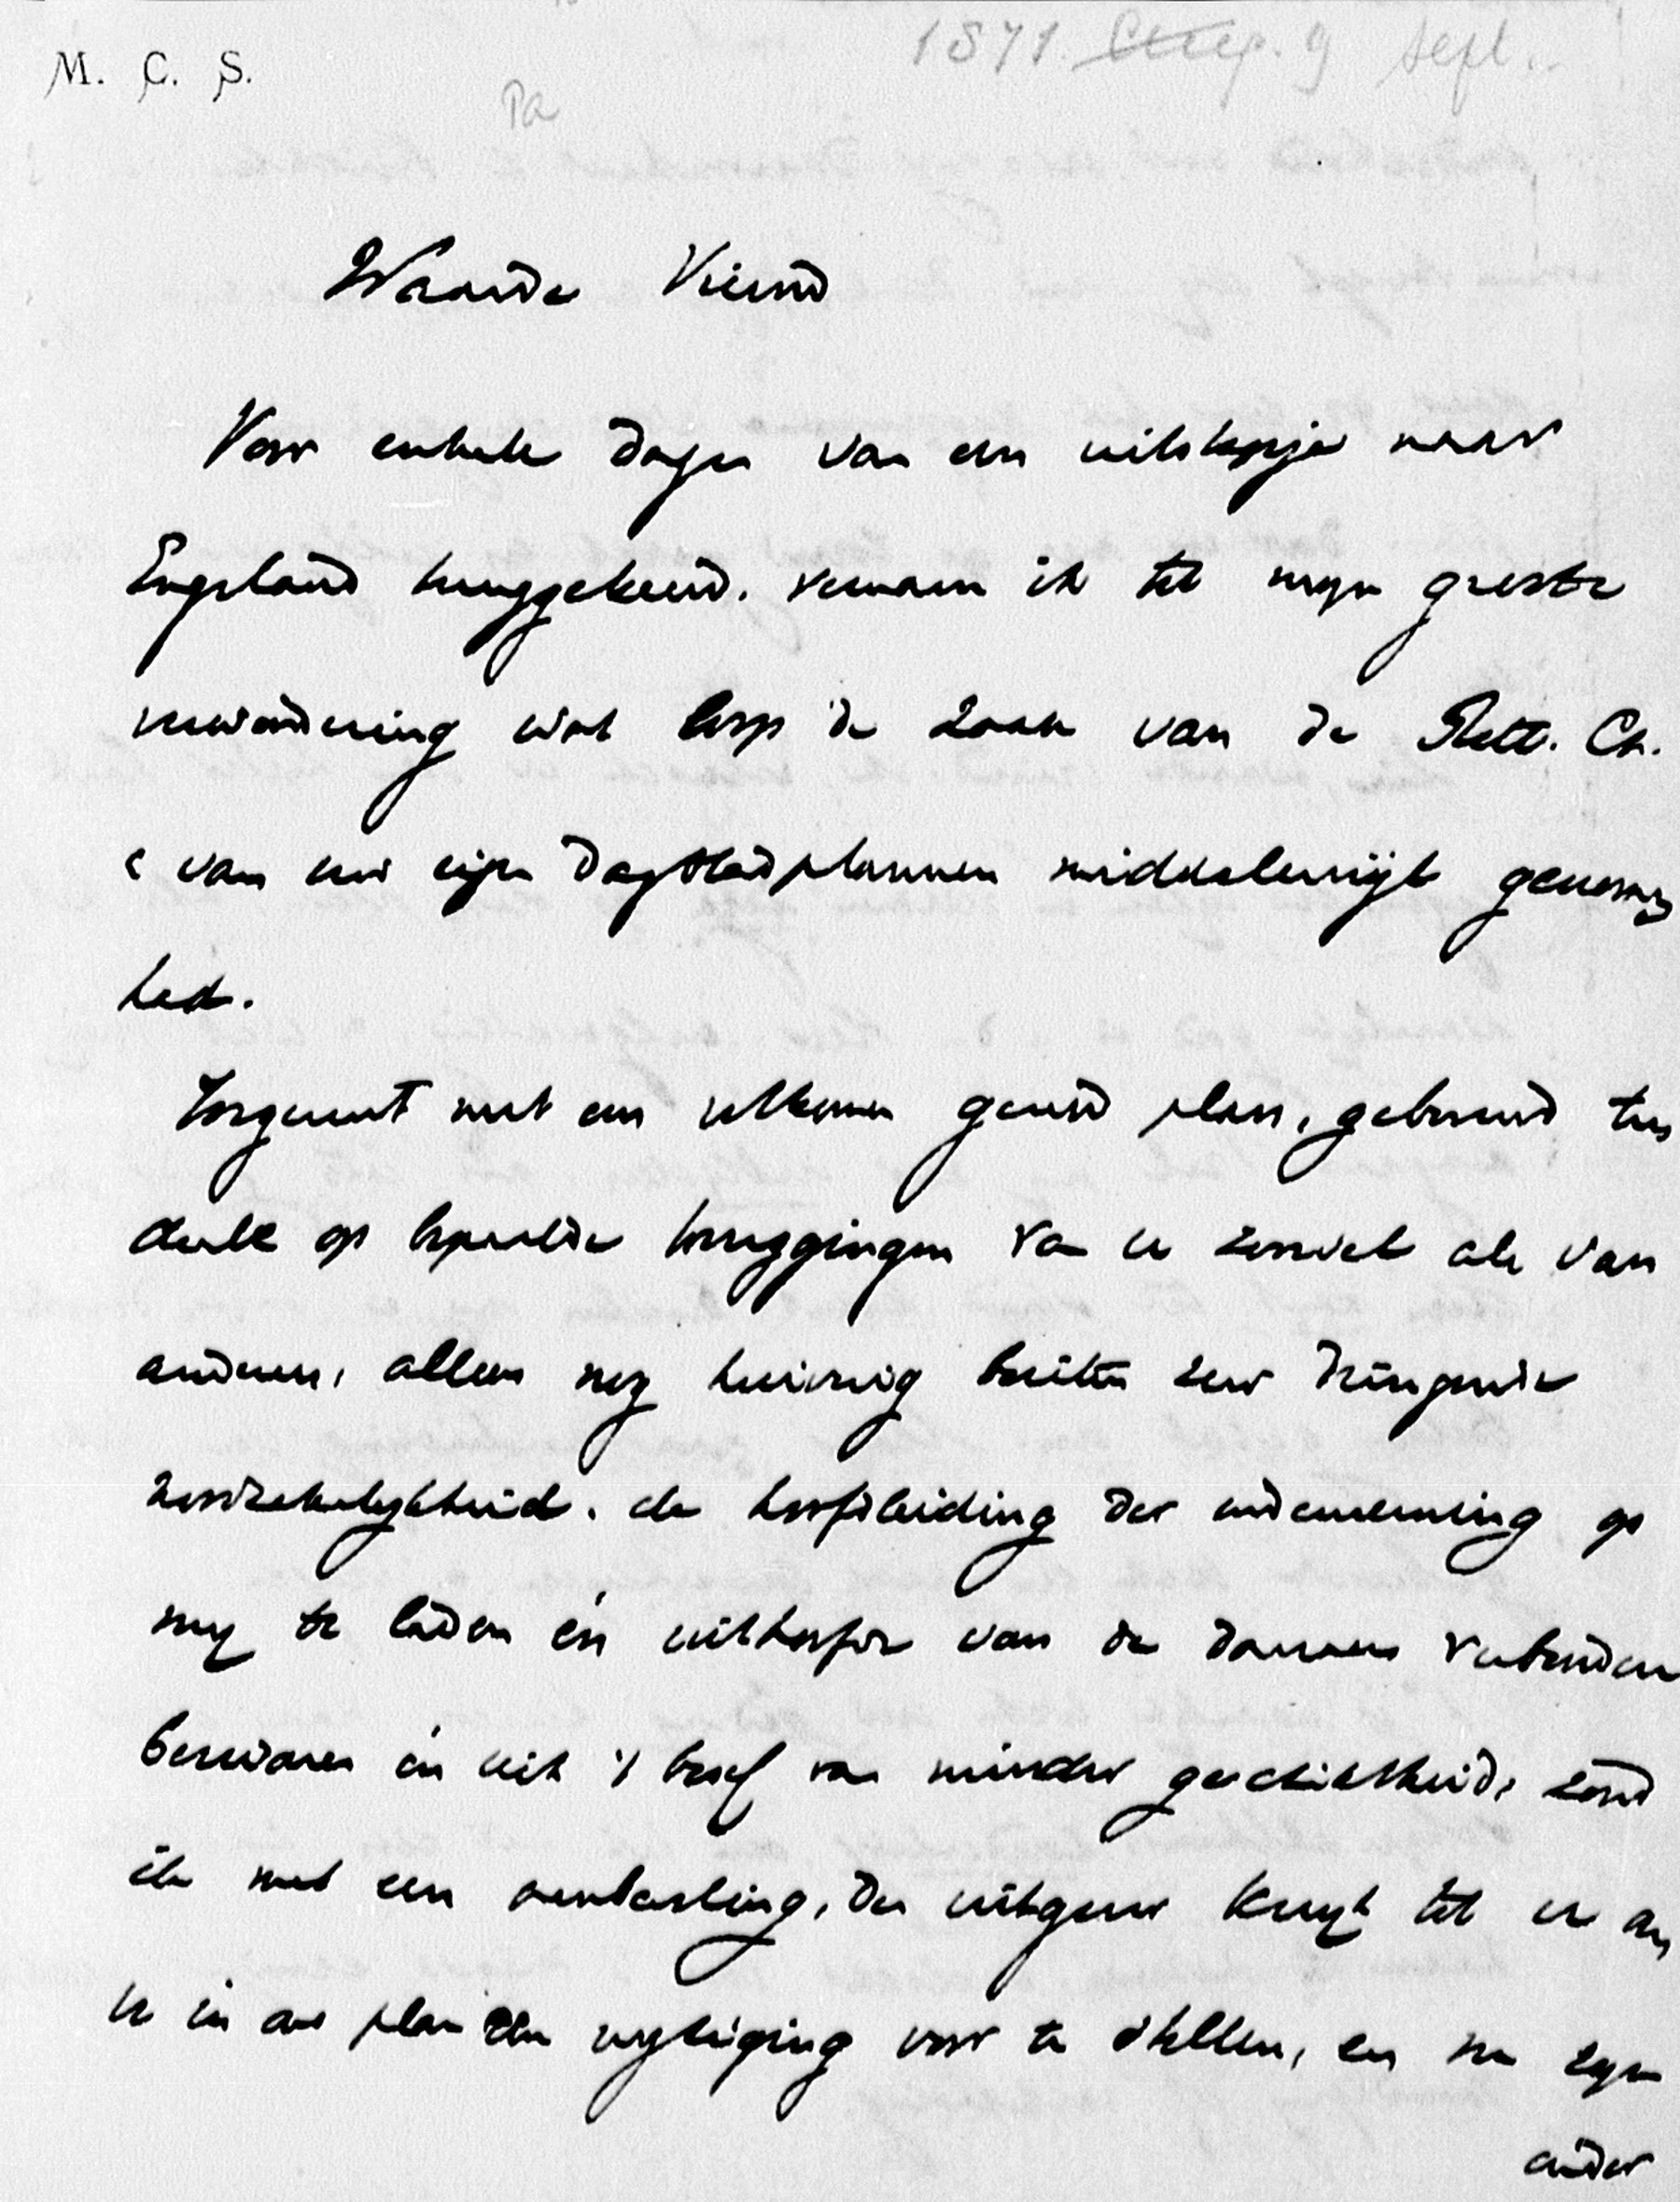 M. C. S.
1871. Aug. 9 Sept.
Pa
Waarde Vriend
Voor enkele dagen van een uitstapje naar
Engeland teruggekeerd. vernam ik tot myn groote
verwondering wat loop de zaak van de Rott. Ct.
& van uw eigen dagbladplannen middelerwijl genomen
had.
Toegerust met een volkomen gereed plan, gebouwd ten
deele op bepaalde toezeggingen van u zoowel als van
anderen, alleen nog huiverig buiten zeer dringende
noodzakelykheid. de hoofdleiding der onderneming op
my te laden én uithoofde van de daaraan verbonden
bezwaren én uit 't besef van minder geschiktheid, zond
ik met een aanbeveling, den uitgever Kruyt tot u om
u in ons plan een wyziging voor te stellen, en nu zyn
ander